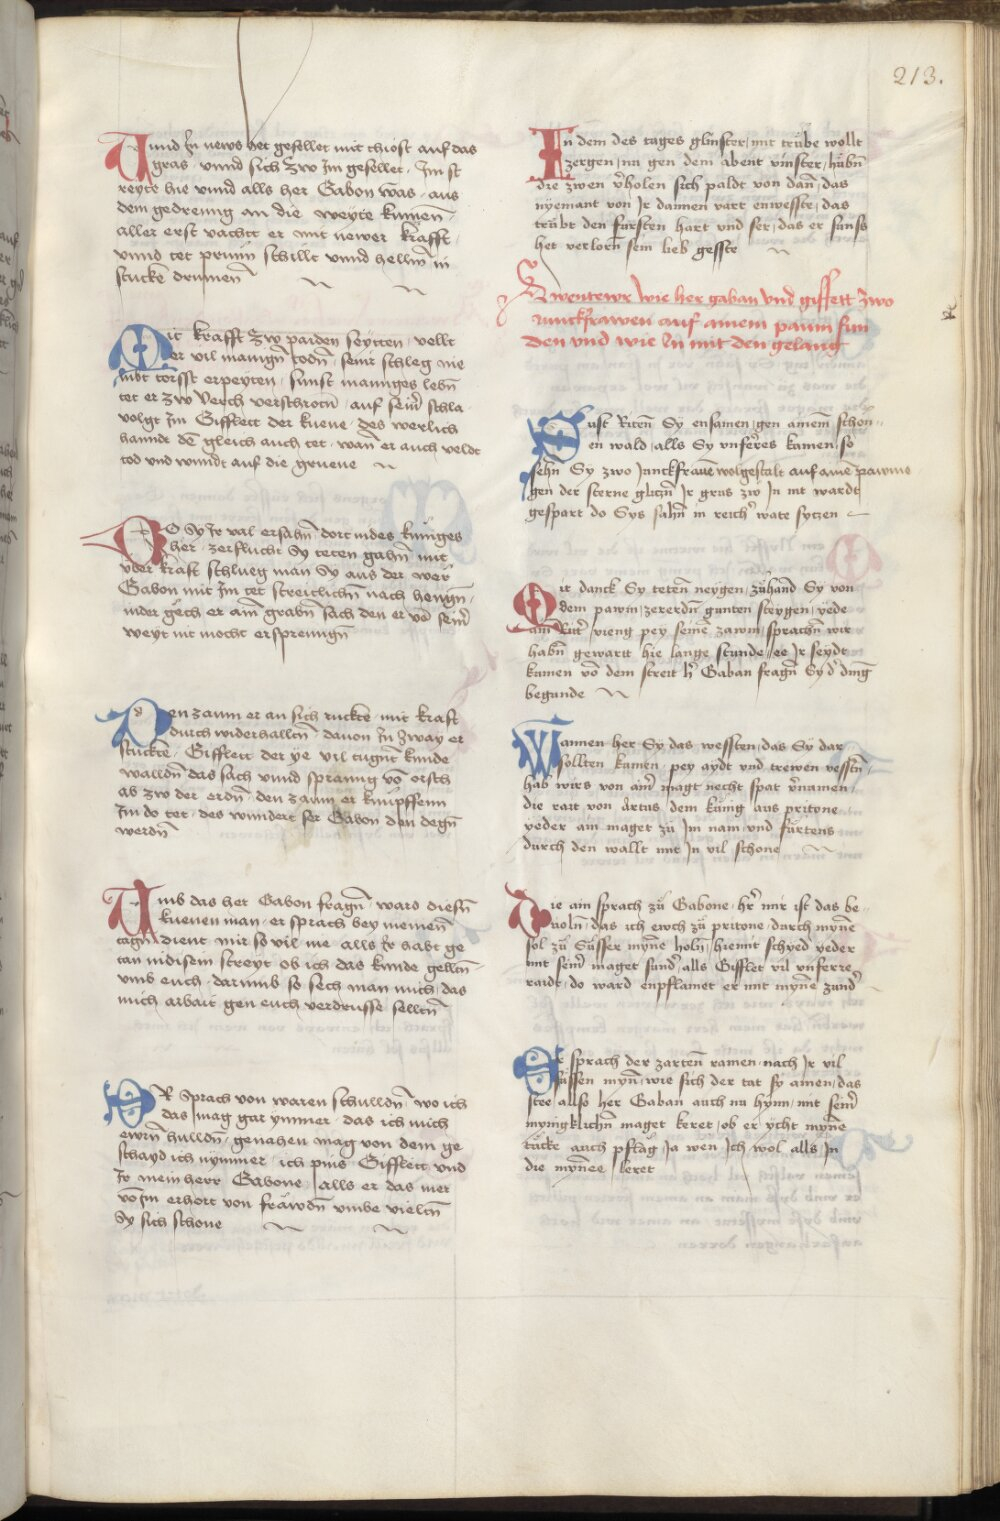 213.
Unnd Jn news het gesellet mit thiost auf das
gras · unnd sich Zw Jm gesellet · Jm st
reyte hie unnd alls her Gabon was · aus
dem gedreung an die weyte kumen
aller erst vachtt er mit newer krafft ·
unnd tet prunn schillt unnd hellm̄ in
stucken drumen̄
Mit krafft Zw paiden seytten · vellt
er vil manign̄ todn̄ · seinr schleg nie
torsst erpeyten · sunst manniges lebn̄
tet er Zw verch verschrotn̄ · auf sein̄ schla
volgt Jm Gifflett der kuene · des werlich
hanndt dē gleich auch tet · wan̄ er auch veldt
tod und wundt auf die gruene
DO Sy Jr val ersahn̄ · dort indes kuniges
her · zerflucht Sy teten gahn̄ mit
uber kraft schlueg man Sy aus der wer
Gabon mit Jm tet streitlichn̄ nach hengn̄ ·
inder gech er ain̄ grabn̄ sach den er vō sein̄
weyt nit mocht ersprenngn̄
Den zaum er an sich ruckte · mit kraft
durch widerhalltn̄ · davon Jn Zway er
stuckte · Gifflett der ye vil tugnt kunde
walldn̄ das sach unnd sprenng vō orsch
ab zw der erdn̄ · den zaum er knupffenn
Jm do tet · des wundert ser Gabon den degn̄
werdn̄
Umb das her Gabon fragn̄ · ward diesn̄
kuenen man · er sprach bey meinen̄
tagn̄ dient mir so vil nie alls Jr habt ge
tan indisem streyt · ob ich das kunde gelltn̄
umb euch · darumb so sech man mich · das
mich arbait gen euch verdrusse selltn̄
ER Sprach von waren schulldn̄ · wo ich
das mag gar ymmer · das ich mich
ewrn̄ hulldn̄ · genahen mag von dem ge
schayd ich nymmer · ich pins Gifflett und
Jr mein herr Gabone · alls er das mer
vō Jm erhort von frawdn̄ umbe vieltn̄
Sy sich schone
In dem des tages glinster · mit trübe wollt
zergen · nu gen dem abent vinster · habn̄
die zwen v̄holen sich paldt von dan̄ · das
nyemant von Jr dannen vart enwesste · das
trübt den fursten hart und ser · das er sunss
het verlorn̄ sein lieb gesste
Awentewr wie her gaban und giffett zwo
Junckfrawen auf ainem paum fun
den und wie Jn mit den gelang
Sust Riten̄ Sy ensamen · gen ainem schon
en wald · alls Sy unfer̄es kamen · so
sehn̄ Sy zwo Junckfrauē wolgestalt auf aine pawme
gen der sterne glitzn̄ Jr grus zw Jn nit wardt
gespart do Sys sahn̄ in reich̄ wate sytzen
Mit danck Sy teten̄ neygen · zuhand Sy von
dem pawm · zererdn̄ gunten steygen · yede
ain̄ Ritt̄ vieng pey seinē zawm · sprachn̄ wir
habn̄ gewartt hie lange stunde · ee Jr seydt
kumen vō dem streit h̄ Gaban fragn̄ Sy d̄ ding
begunde
Wannen her Sy das wessten · das Sy dar
sollten kamen · pey aydt und trewen vesstn̄ ·
hab wirs von ain̄ magt necht spat v̄namen ·
die rait von Artus dem küng aus pritone
yeder ain maget zu Jm nam · und fürtens
durch den wallt mit Jn vil schone
Die ain sprach zu Gabone · hr̄ mir ist das be
voln̄ · das ich ewch zu pritone · durch mynē
sol zu Süsser mynē holn̄ · hiemit schyed yeder
mit sein̄ maget sund̄ · alls Gifflet vil unferre
raidt · do ward enpflamet er mit mynē zund̄
Er sprach der zarten̄ ramen · nach Jr vil
süssen myn̄ · wie sich der tat sy amen · das
stee allso her Gaban auch nu hynn · mit sein̄
mynigklichn̄ maget keret · ob er ycht mynē
tücke auch pfläg · Ja wen Jch wol alls Jn
die mynee leret